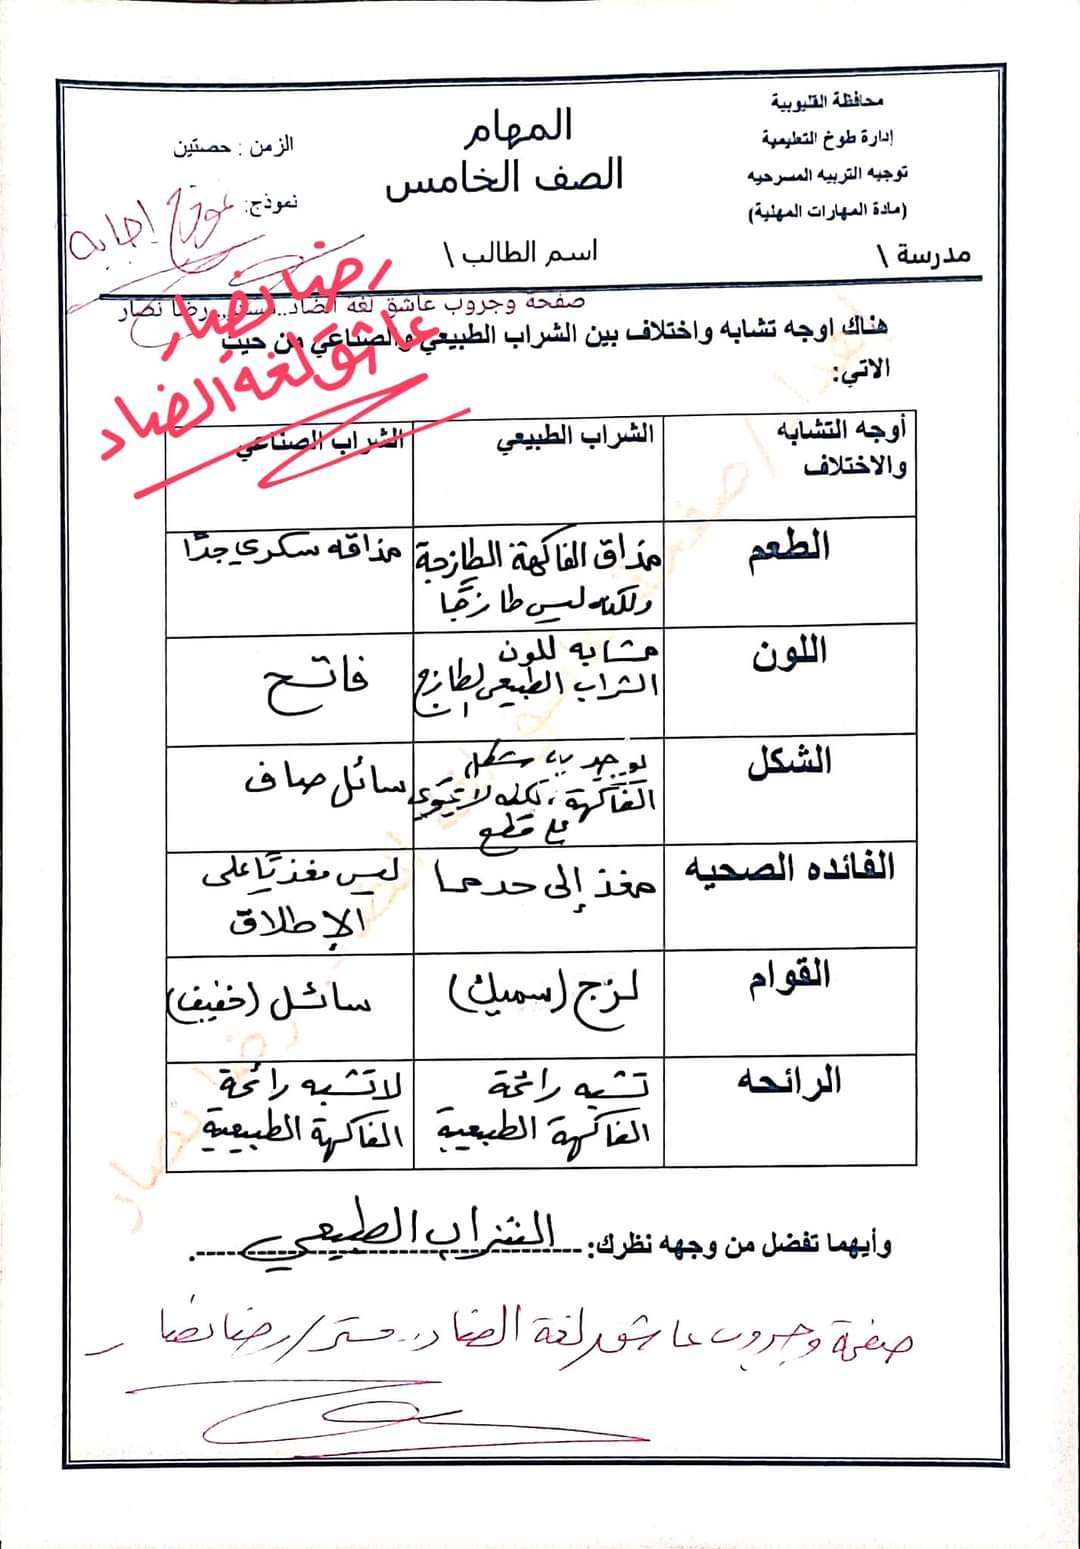 محافظة القليوبية
إدارة طوخ التعليمية
توجيه التربيه المسرحيه
(مادة المهارات المهلية)
المهام
الصف الخامس
الزمن : حصتين
نموذج: نموذج إجابه
مدرسة \
اسم الطالب \
رضا نصار
عاشق لغة الضاد
صفحة وجروب عاشق لغة الضاد..مستر.. رضا نصار
هناك اوجه تشابه واختلاف بين الشراب الطبيعي والصناعي من حيث
الاتي:
أوجه التشابه والاختلاف
الشراب الطبيعي
الشراب الصناعي
الطعم
مذاق الفاكهة الطازجة
ولكنه ليس طازجًا
مذاقه سكري جدًا
اللون
مشابه للون
الشراب الطبيعي الطازج
فاتح
الشكل
يوجد به شكل
الفاكهة، لكنه لا يحتوي
على قطع
سائل صاف
الفائده الصحيه
مغذ إلى حد ما
ليس مغذيًا على
الإطلاق
القوام
لزج (سميك)
سائل (خفيف)
الرائحه
تشبه رائحة
الفاكهة الطبيعية
لا تشبه رائحة
الفاكهة الطبيعية
وأيهما تفضل من وجهه نظرك: الشراب الطبيعي.
صفحة وجروب عاشق لغة الضاد.. مستر/ رضا نصار